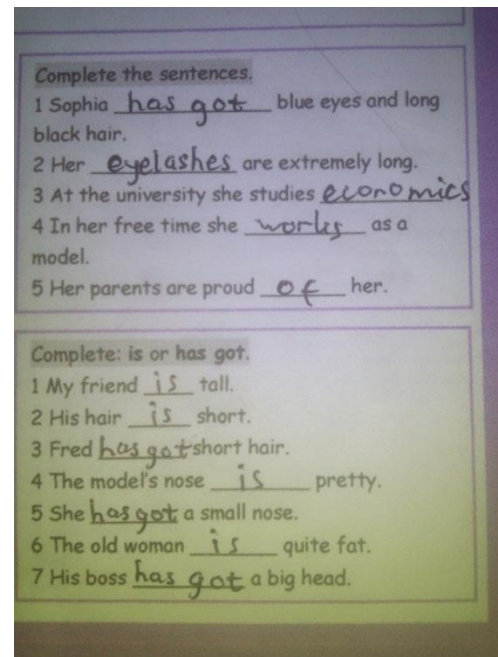 Complete the sentences.
1 Sophia has got blue eyes and long
black hair.
2 Her eyelashes are extremely long.
3 At the university she studies economics
4 In her free time she works as a
model.
5 Her parents are proud of her.
Complete: is or has got.
1 My friend is tall.
2 His hair is short.
3 Fred has got short hair.
4 The model's nose is pretty.
5 She has got a small nose.
6 The old woman is quite fat.
7 His boss has got a big head.